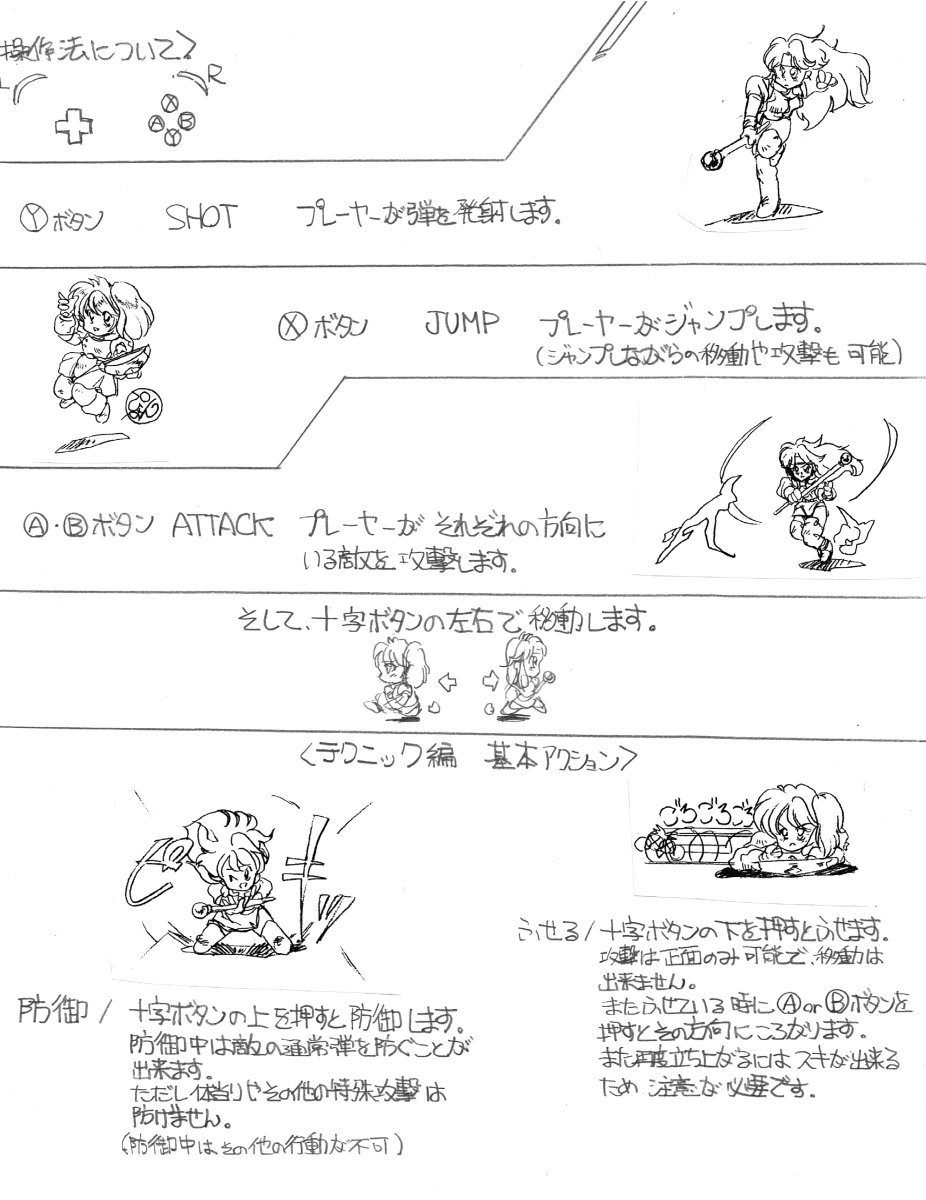 操作法について>
L
R
X
A B
Y
Yボタン SHOT プレーヤーが弾を発射します。
Xボタン JUMP プレーヤーがジャンプします。
(ジャンプしながらの移動や攻撃も可能)
A・Bボタン ATTACK プレーヤーがそれぞれの方向に
いる敵を攻撃します。
そして、十字ボタンの左右で移動します。
<テクニック編 基本アクション>
キン
ごろごろごろ
防御/十字ボタンの上を押すと防御します。
防御中は敵の通常弾を防ぐことが
出来ます。
ただし体当りやその他の特殊攻撃は
防げません。
(防御中は、その他の行動が不可)
ふせる/十字ボタンの下を押すとふせます。
攻撃は正面のみ可能で、移動は
出来ません。
またふせている時にA or Bボタンを
押すとその方向にころがります。
また再度立ち上がるにはスキが出来る
ため注意が必要です。